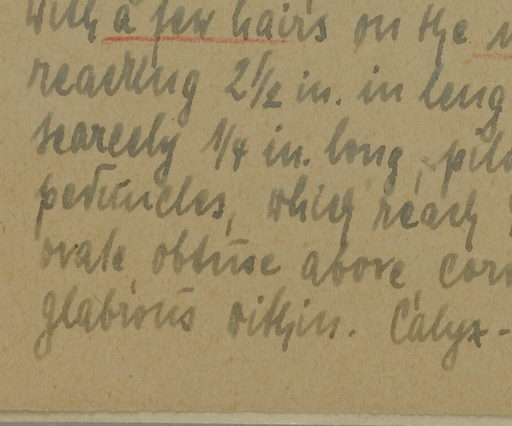 with a few hairs on the
reaching 2½ in. in leng
scarcely ¼ in. long, pilo
peduncles, which reach
ovate obtuse above, coro
glabrous within. Calyx-